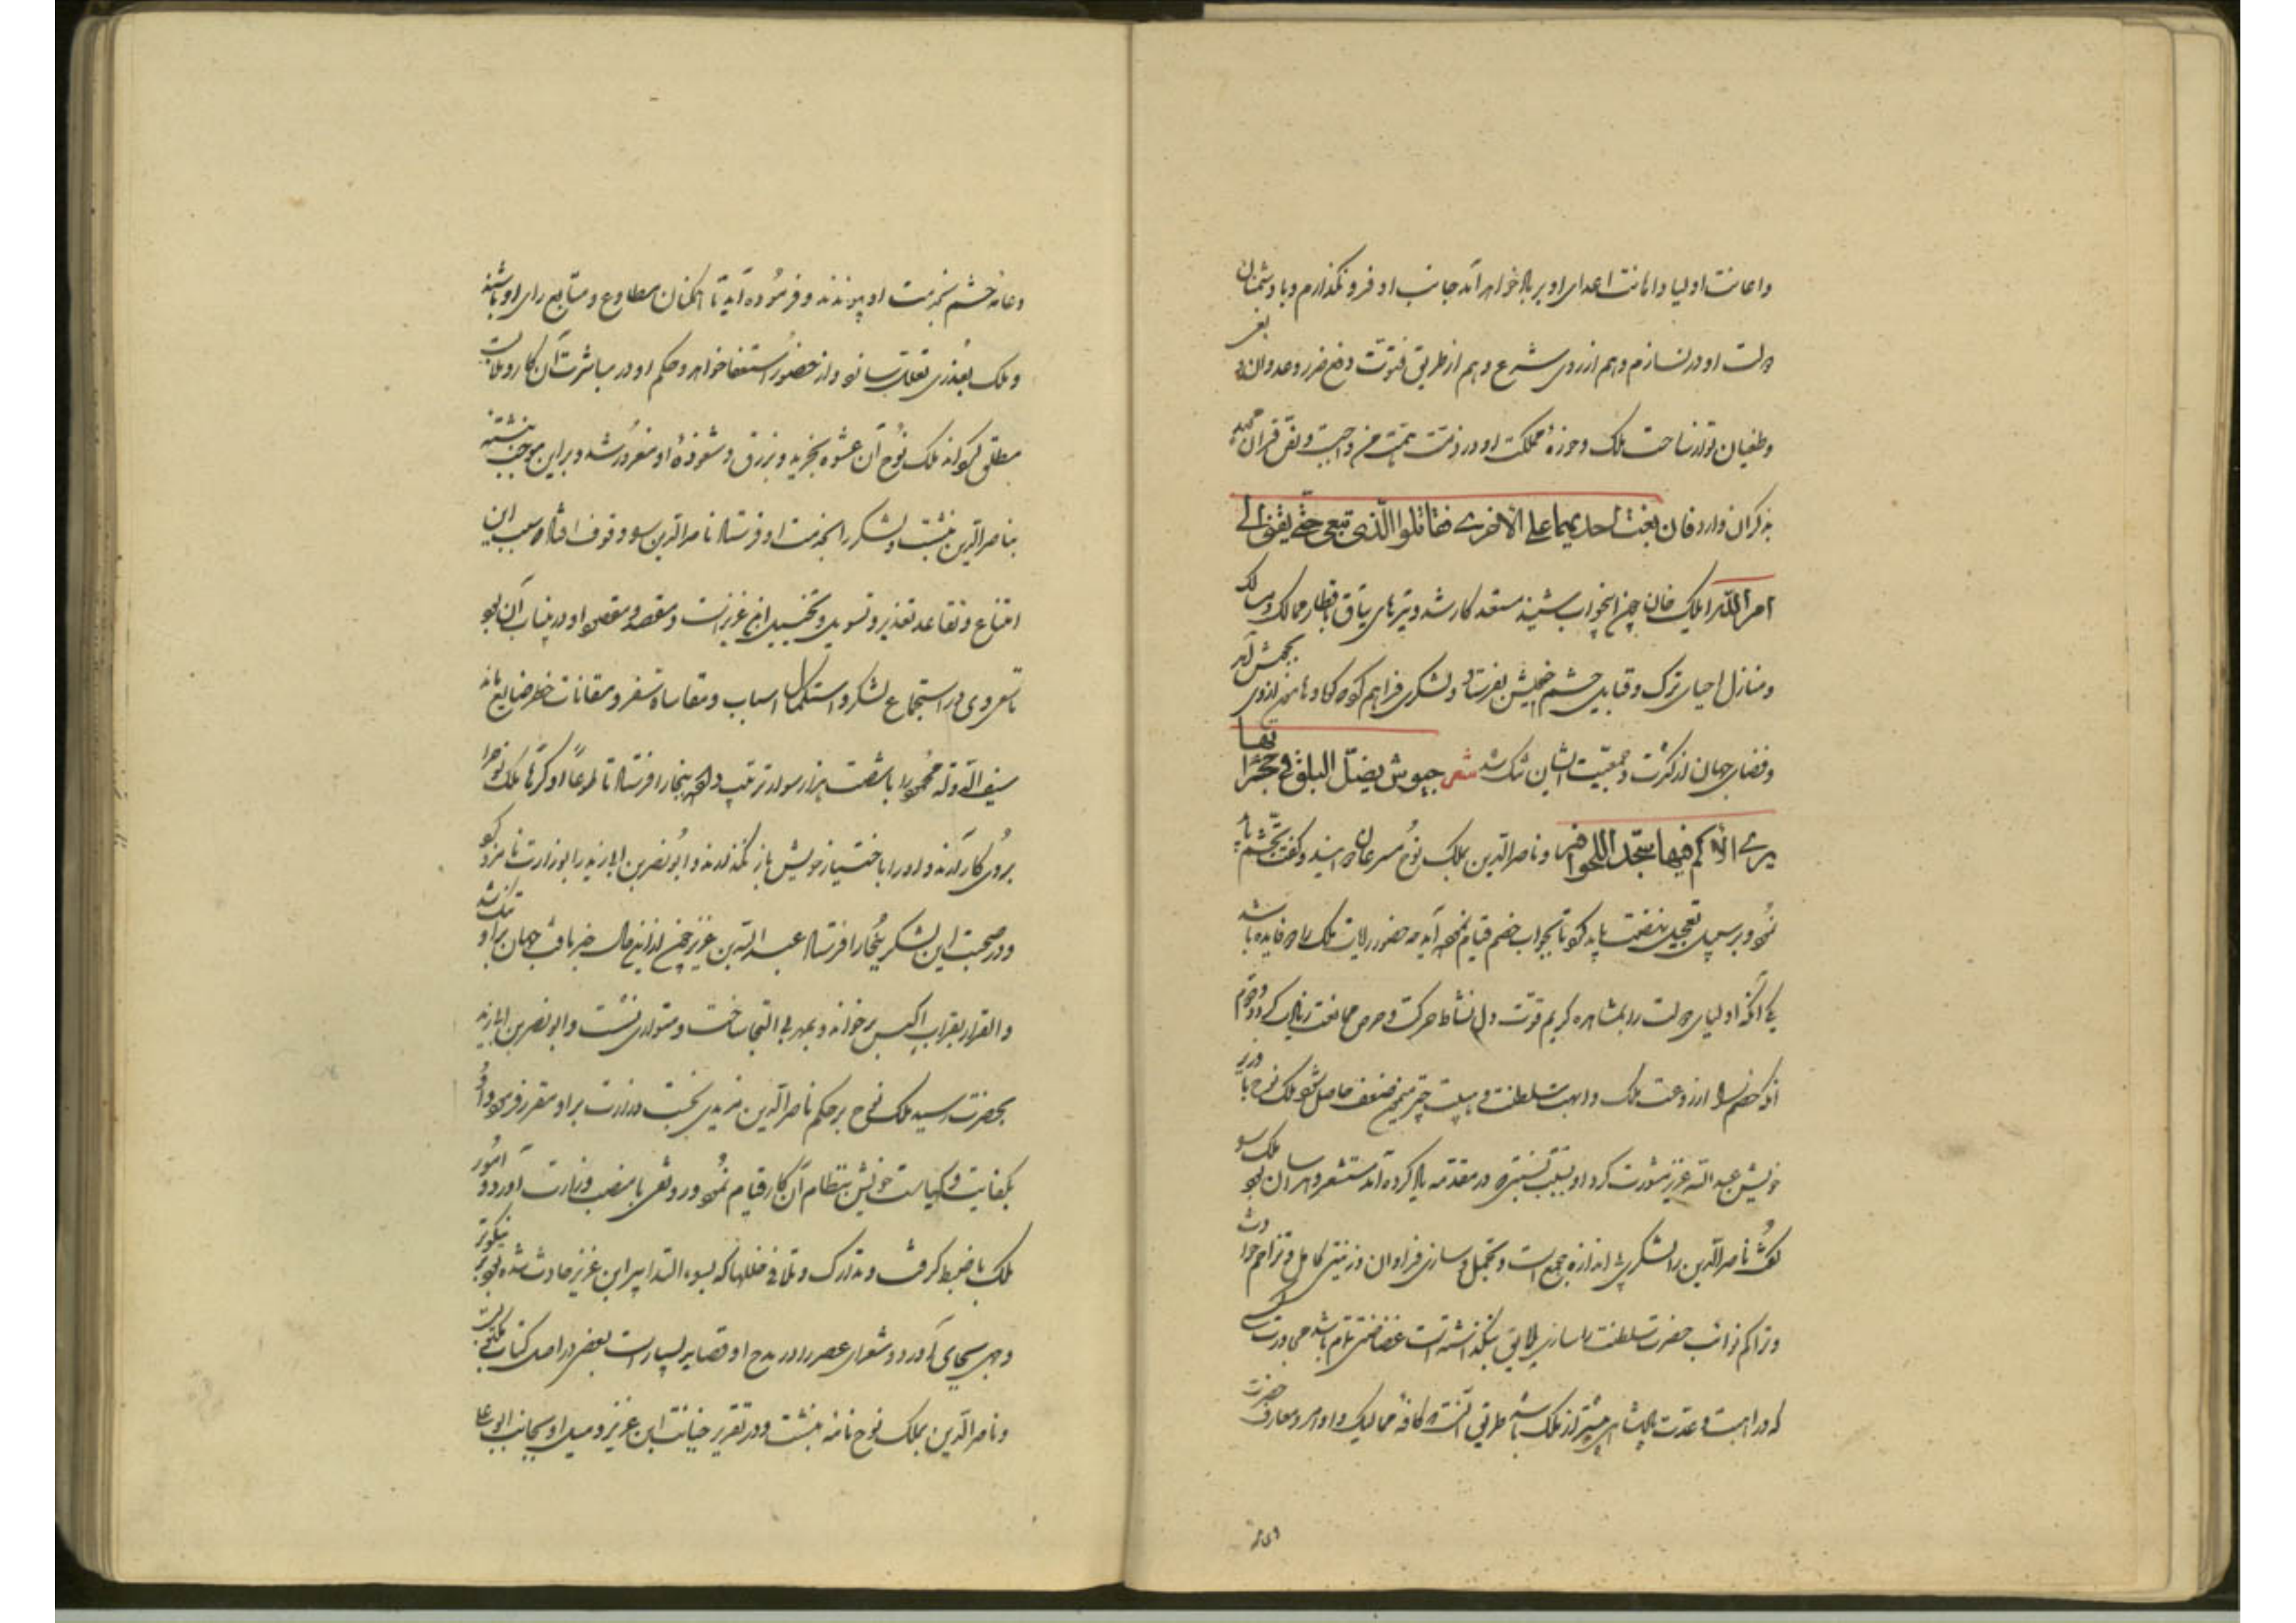 واعانت اولیا و اهانت اعدای او بر بالا خواهد آمد جانب او فرو نگذارم و با دشمنان
دولت او در نسازم و هم از روی شرع و هم از طریق فتوت دفع ضرر و عدوان و بغی
و طغیان تو از ساحت ملک و حوزهٔ مملکت او در ذمت همت من واجبست و نص قرآن مجید
بذکر آن وارد فان بغت احدیهما علی الاخری فقاتلوا الذی تبغی حتی یفئ الی
امر الله ایلک خان چون این جواب بشنید مستعد کار شد و تیرهای یتاق باقطار ممالک و مسالک
و منازل احیای ترک و قبایل حشم خویش بفرستاد و لشکری فراهم کرد که کاو ماهی از وی بجنبش آمد
و فضای جهان از کثرت و جمعیت ایشان تنک شد شعر جیوش یضل البلق فی حجراتها
یری الاکم فیها سجّدا للحوافر و ناصرالدین بملک نوح مسرعان دوانید و کفت تجشم باید
نمود و بر سبیل تعجیل نهضت باید کرد تا بجواب خصم قیام نموده آید چه حضور رایات ملک را دو فایده باشد
یکی آنکه اولیای دولت را بمشاهده کریم قوت دل و نشاط حرکت و حرص ممانعت زیادت کردد و دوم
آنکه خصم را از روعت ملک و ابهت سلطنت و هیبت چتر میمون ضعف حاصل شود ملک نوح با وزیر
خویش عبدالله عزیز مشورت کرد او بسبب آنستی که در مقدمه یاد کرده آمد مستشعر و هراسان بود ملک را
گفت ناصرالدین را لشکری بی اندازه جمع است و تجمل و سازی فراوان و زینتی کامل و تزاحم حوادث
و تراکم نوائب حضرت سلطنت را سازی لایق بنگذاشته است غضاضتی تمام باشد مجاورت کسی
که در اهبت و عدت پادشاهی بیشتر از ملک باشد طریق آنست که کافهٔ ممالیک و اوامر و معارف حضرت
وعامهٔ حشم بخدمت او پیوندند و فرموده آید تا همکنان مطاوع و متابع رای او باشند
و ملک بعذری تعلل سازد و از حضور استعفا خواهد و حکم او در مباشرت آن کار و ملابست
مطلق کرداند ملک نوح آن عشوه بخرید و بزرق و شعوذهٔ او مغرور شد و براین موجب نبشته
بناصرالدین نبشت و لشکر را بخدمت او فرستاد ناصرالدین را وقوف افتاد که سبب این
امتناع و تقاعد تعذیر و تسویل و تخییل ابن عزیز است و مقصد و مقصود او در ضباب آن بود
تا سعی وی در استجماع لشکر و استکمال اسباب و مقاسات سفر و معانات خطر ضایع ماند
سیف الدوله محمود را با شصت هزار سوار ترتیب داد و ببخارا فرستاد تا طوعا او کرها ملک نوح را
بروی کار آرند و او را باختیار خویش باز نگذارند و ابونصر بن ابی زید را بوزارت نامزد کرد
و در صحبت این لشکر ببخارا فرستاد عبدالله بن عزیز چون از این حال خبر یافت جهان بر او تنک شد
و الفرار بقراب اکیس بر خواند و بمهربی التجا ساخت و متواری نشست و ابونصر بن ابی زید
بحضرت رسید ملک نوح بر حکم ناصرالدین مزیدی نجست و وزارت براو مقرر فرمود و او
بکفایت و کیاست خویش بنظام آن کار قیام نمود و رونقی با منصب وزارت آورد و امور
ملک با ضبط کرفت و تدارک و تلافی خللها که بسوء التدابیر ابن عزیز حادث شده بود نیکوتر
وجهی بجای آورد و شعرای عصر را در مدح او قصاید بسیار است بعضی در اصل کتاب مکتوب است
و ناصرالدین بملک نوح نامه نبشت و در تقریر خیانت ابن عزیز و میل او بجانب ابوعلی